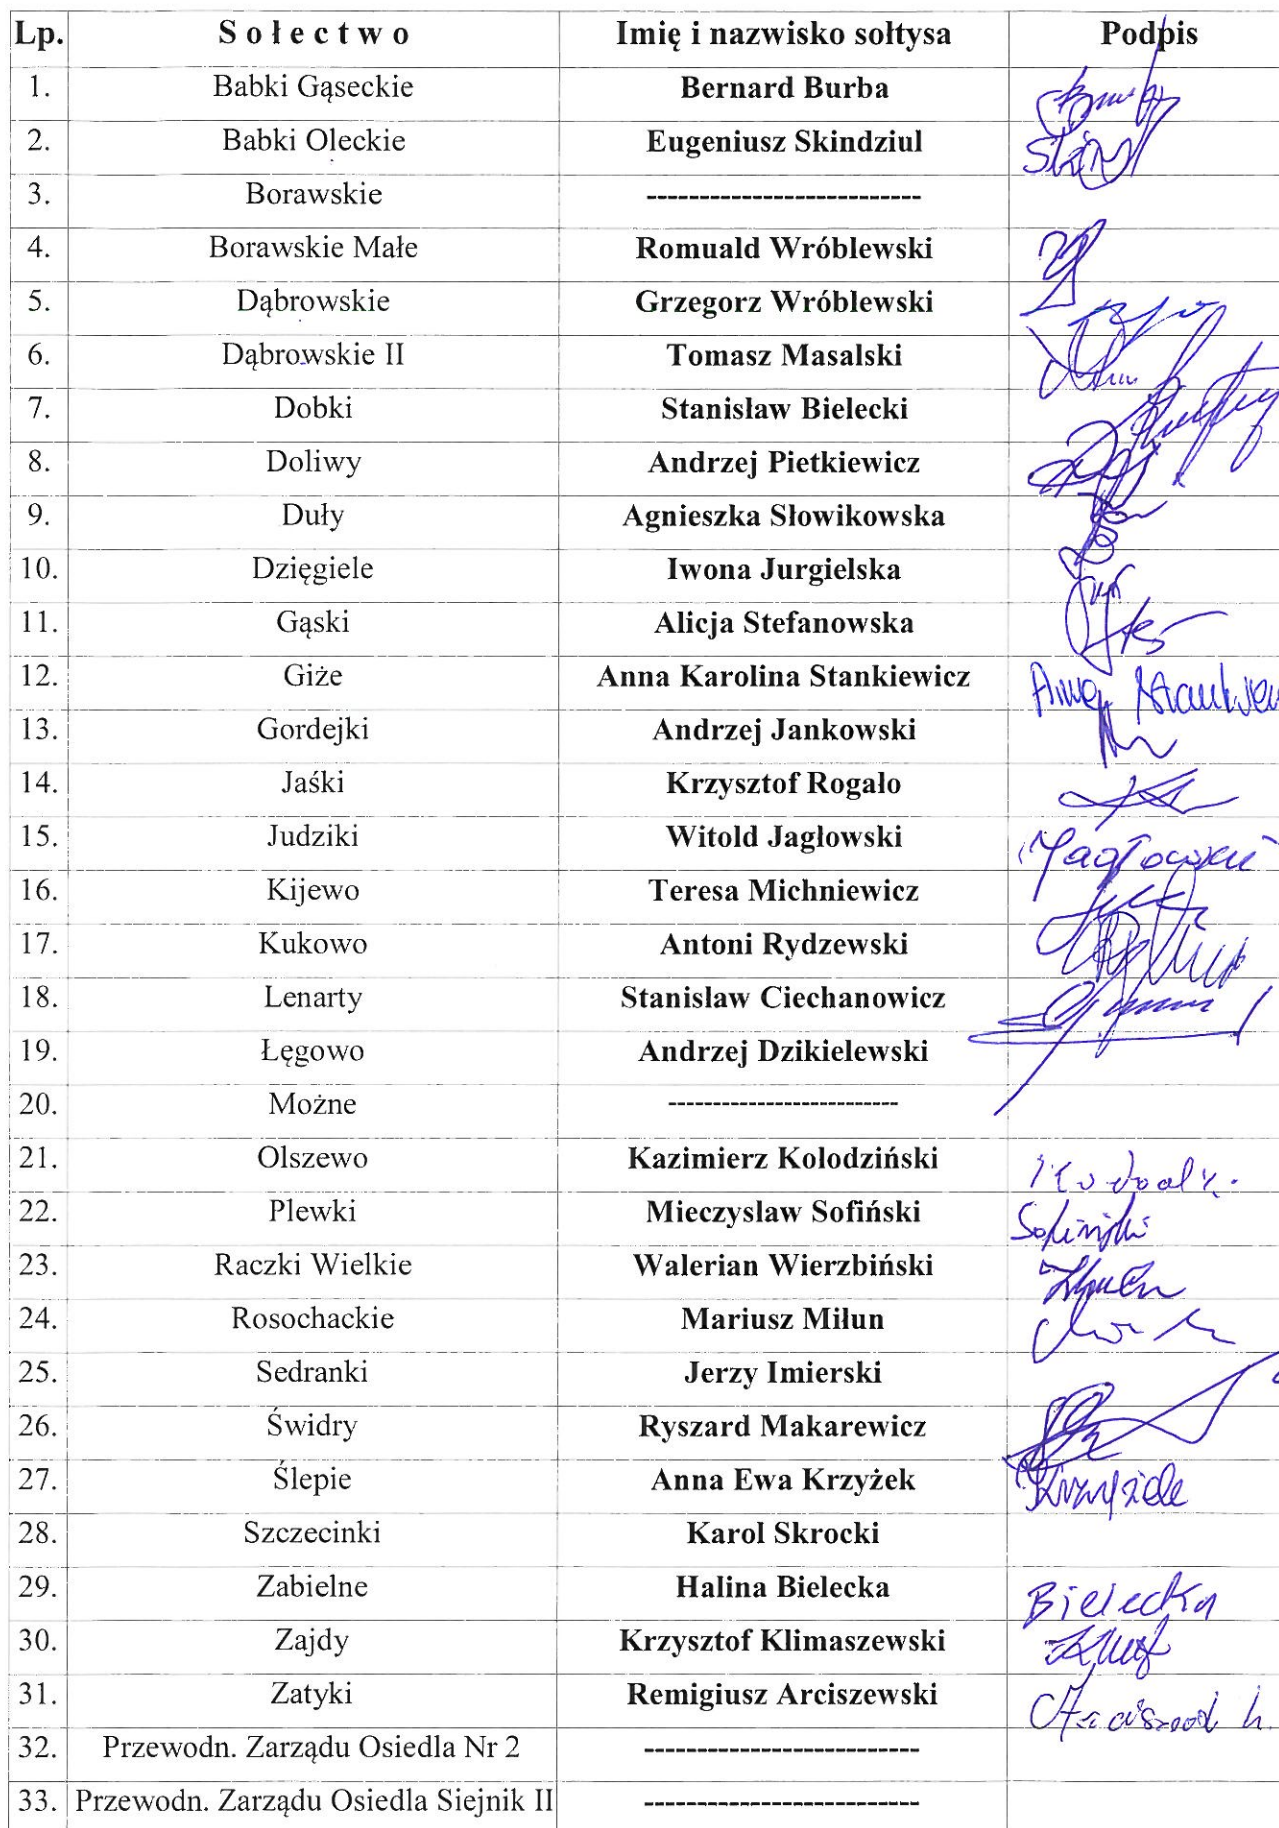 Lp. Sołectwo Imię i nazwisko sołtysa Podpis
1. Babki Gąseckie Bernard Burba
2. Babki Oleckie Eugeniusz Skindziul
3. Borawskie -------------------------
4. Borawskie Małe Romuald Wróblewski
5. Dąbrowskie Grzegorz Wróblewski
6. Dąbrowskie II Tomasz Masalski
7. Dobki Stanisław Bielecki
8. Doliwy Andrzej Pietkiewicz
9. Duły Agnieszka Słowikowska
10. Dzięgiele Iwona Jurgielska
11. Gąski Alicja Stefanowska
12. Giże Anna Karolina Stankiewicz
13. Gordejki Andrzej Jankowski
14. Jaśki Krzysztof Rogało
15. Judziki Witold Jagłowski Jagłowski
16. Kijewo Teresa Michniewicz
17. Kukowo Antoni Rydzewski
18. Lenarty Stanisław Ciechanowicz
19. Łęgowo Andrzej Dzikielewski
20. Możne -------------------------
21. Olszewo Kazimierz Kołodziński
22. Plewki Mieczysław Sofiński Sofiński
23. Raczki Wielkie Walerian Wierzbiński
24. Rosochackie Mariusz Miłun
25. Sedranki Jerzy Imierski
26. Świdry Ryszard Makarewicz
27. Ślepie Anna Ewa Krzyżek
28. Szczecinki Karol Skrocki
29. Zabielne Halina Bielecka Bielecka
30. Zajdy Krzysztof Klimaszewski
31. Zatyki Remigiusz Arciszewski
32. Przewodn. Zarządu Osiedla Nr 2 -------------------------
33. Przewodn. Zarządu Osiedla Siejnik II -------------------------